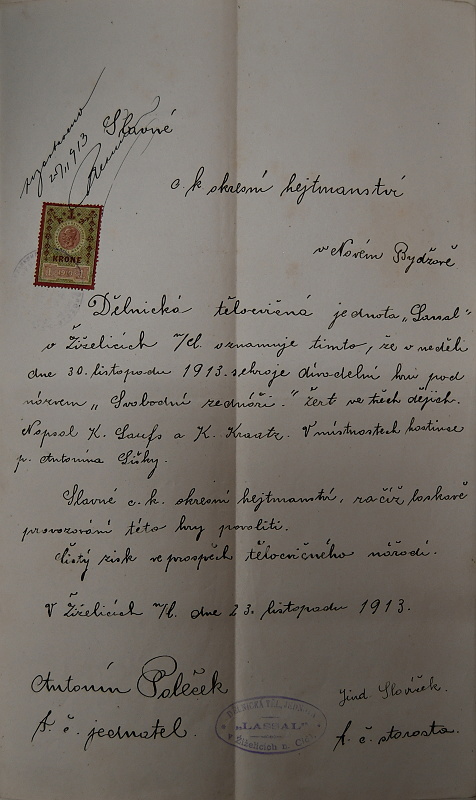 vyzentováno
25/11 1913
Slavné
c. k okresní hejtmanství
v Novém Bydžově
1
KRONE
1 1910 1
Dělnická tělocvičná jednota „Lassal"
v Žiželicích n/C. oznamuje timto, že v neděli
dne 30. listopadu 1913. sehroje divadelní hru pod
názvem „Svobodní zednáři." Žert ve třech dějích.
Napsal K. Laufs a K. Kraatz. V místnostech hostince
p. Antonína Šišky.
Slavné c. k. okresní hejtmanství, račiž laskavě
provozování této hry povoliti.
Čistý zisk ve prospěch tělocvičného nářadí.
V Žiželicích n/C. dne 23. listopadu 1913.
Antonín Poleček
t. č. jednatel.
DĚLNICKÁ TĚL. JEDNOTA
„LASSAL"
Žiželicích n. Cidl.
Jind. Slovíšek.
t. č. starosta.